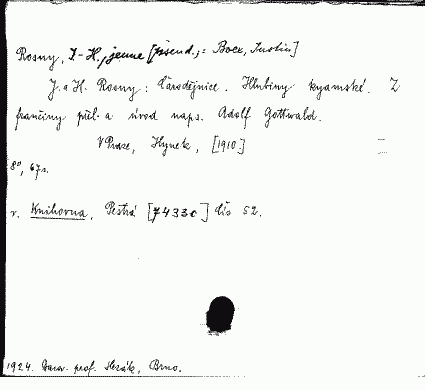 Rosny, J-H. jeune [pseud.; = Boex, Justin]
J. a H. Rosny: Čarodějnice. Hlubiny kyamské. Z
franćiny přel. a úvod naps. Adolf Gottwald.
V Praze, Hynek, [1910]
8°, 67 s.
v. Knihovna, Pestrá [74330] čís 52.
1924. Darov. prof. Brno.